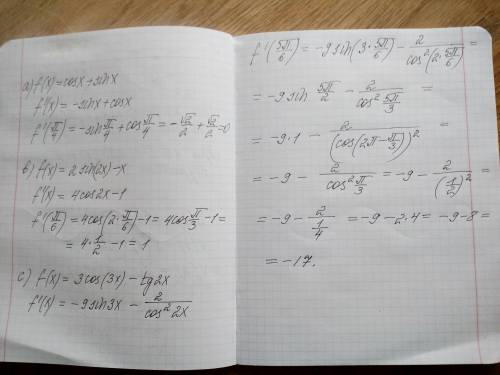 a) f(x) = cosx + sinx
f'(x) = -sinx + cosx
f'(π/4) = -sin π/4 + cos π/4 = -√2/2 + √2/2 = 0
b) f(x) = 2sin(2x) - x
f'(x) = 4cos2x - 1
f'(π/6) = 4cos(2·π/6) - 1 = 4cos π/3 - 1 =
= 4·1/2 - 1 = 1
c) f(x) = 3cos(3x) - tg2x
f'(x) = -9sin3x - 2/cos²2x
f'(5π/6) = -9sin(3·5π/6) - 2/cos²(2·5π/6) =
= -9sin 5π/2 - 2/cos² 5π/3 =
= -9·1 - 2/(cos(2π - π/3))² =
= -9 - 2/cos² π/3 = -9 - 2/(1/2)² =
= -9 - 2/(1/4) = -9 - 2·4 = -9 - 8 =
= -17.